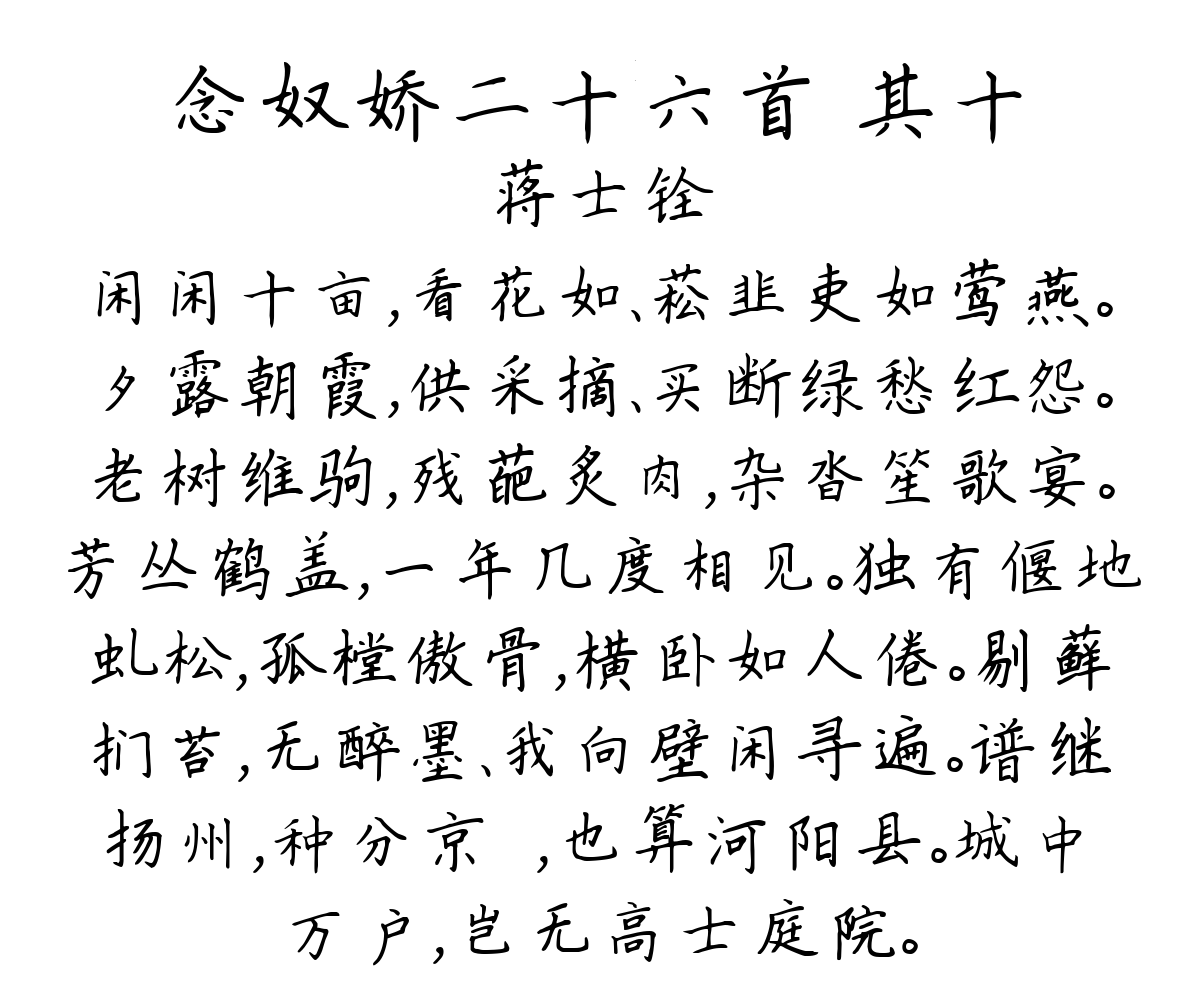 念奴娇二十六首 其十
蒋士铨
闲闲十亩,看花如、菘韭吏如莺燕。
夕露朝霞,供采摘、买断绿愁红怨。
老树维驹,残葩炙肉,杂沓笙歌宴。
芳丛鹤盖,一年几度相见。独有偃地
虬松,孤樘傲骨,横卧如人倦。剔藓
扪苔,无醉墨、我向壁闲寻遍。谱继
扬州,种分京 ,也算河阳县。城中
万户,岂无高士庭院。